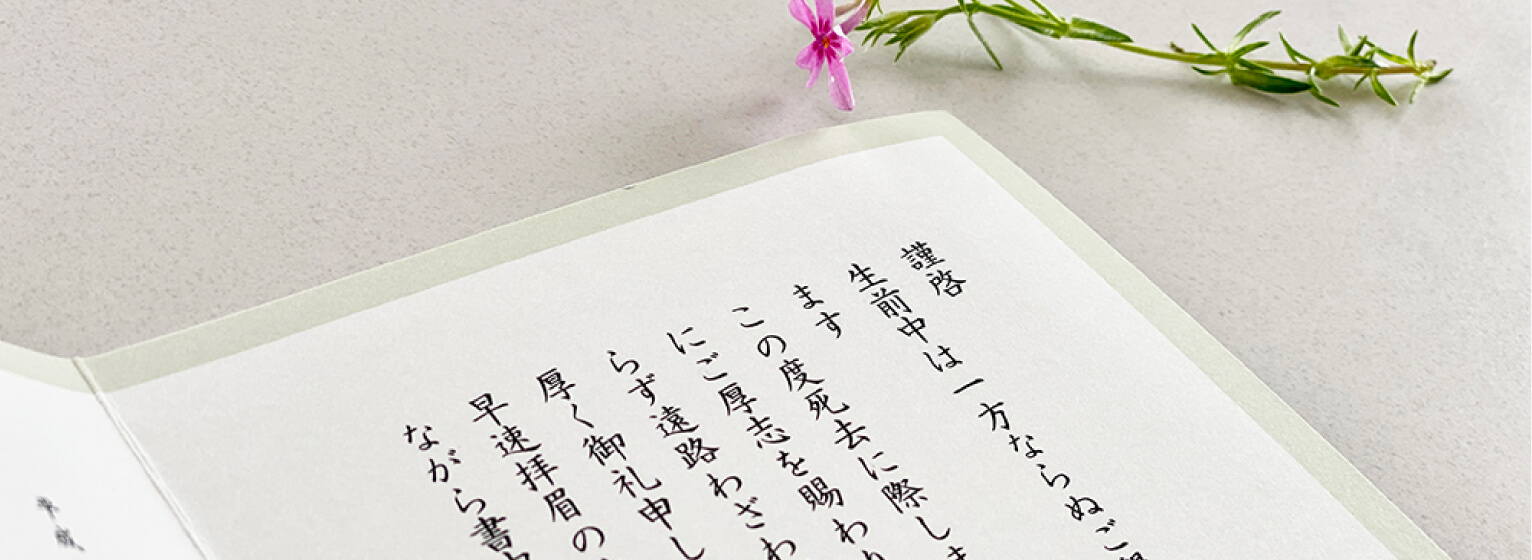 謹啓
生前中は一方ならぬご
ます
この度死去に際しま
にご厚志を賜わり
らず遠路わざわ
厚く御礼申し
早速拝眉の
ながら書中